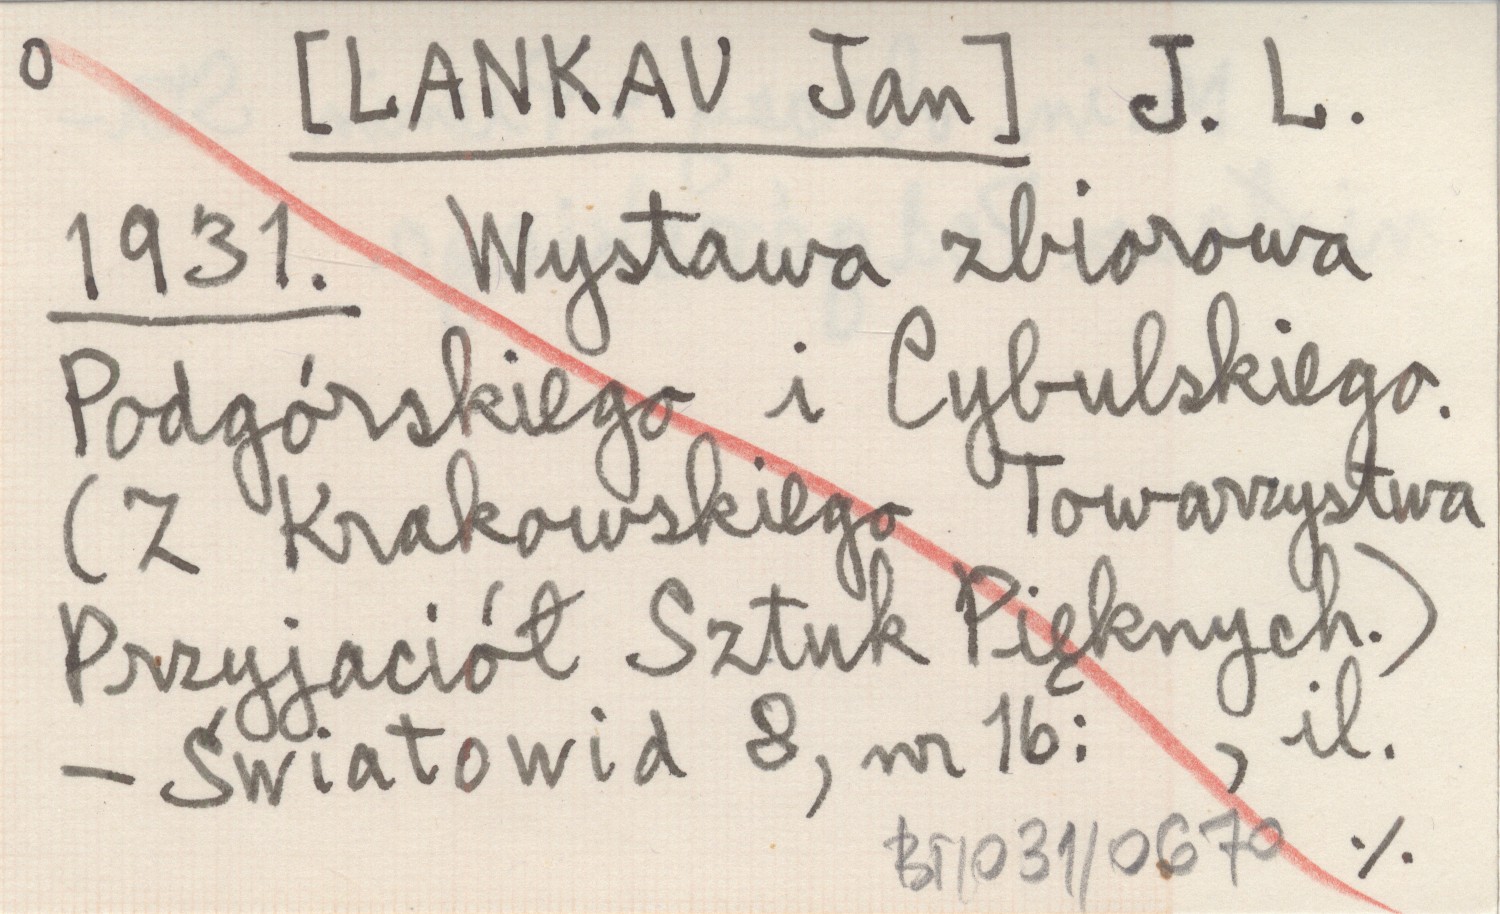 o [LANKAU Jan] J. L.
1931. Wystawa zbiorowa
Podgórskiego i Cybulskiego.
(Z Krakowskiego Towarzystwa
Przyjaciół Sztuk Pięknych.)
– Światowid 8, nr 16: , il.
BI/031/0670 ./.